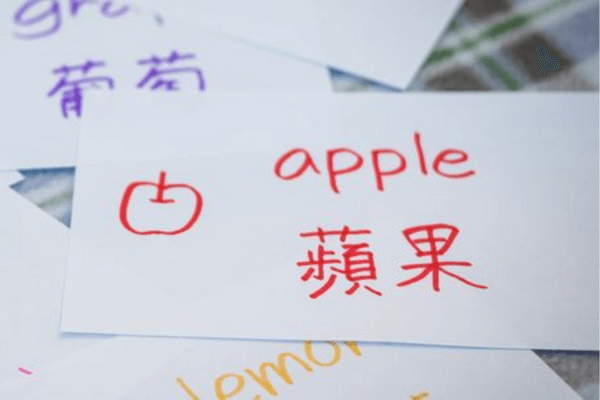 葡萄
apple
蘋果
lemon